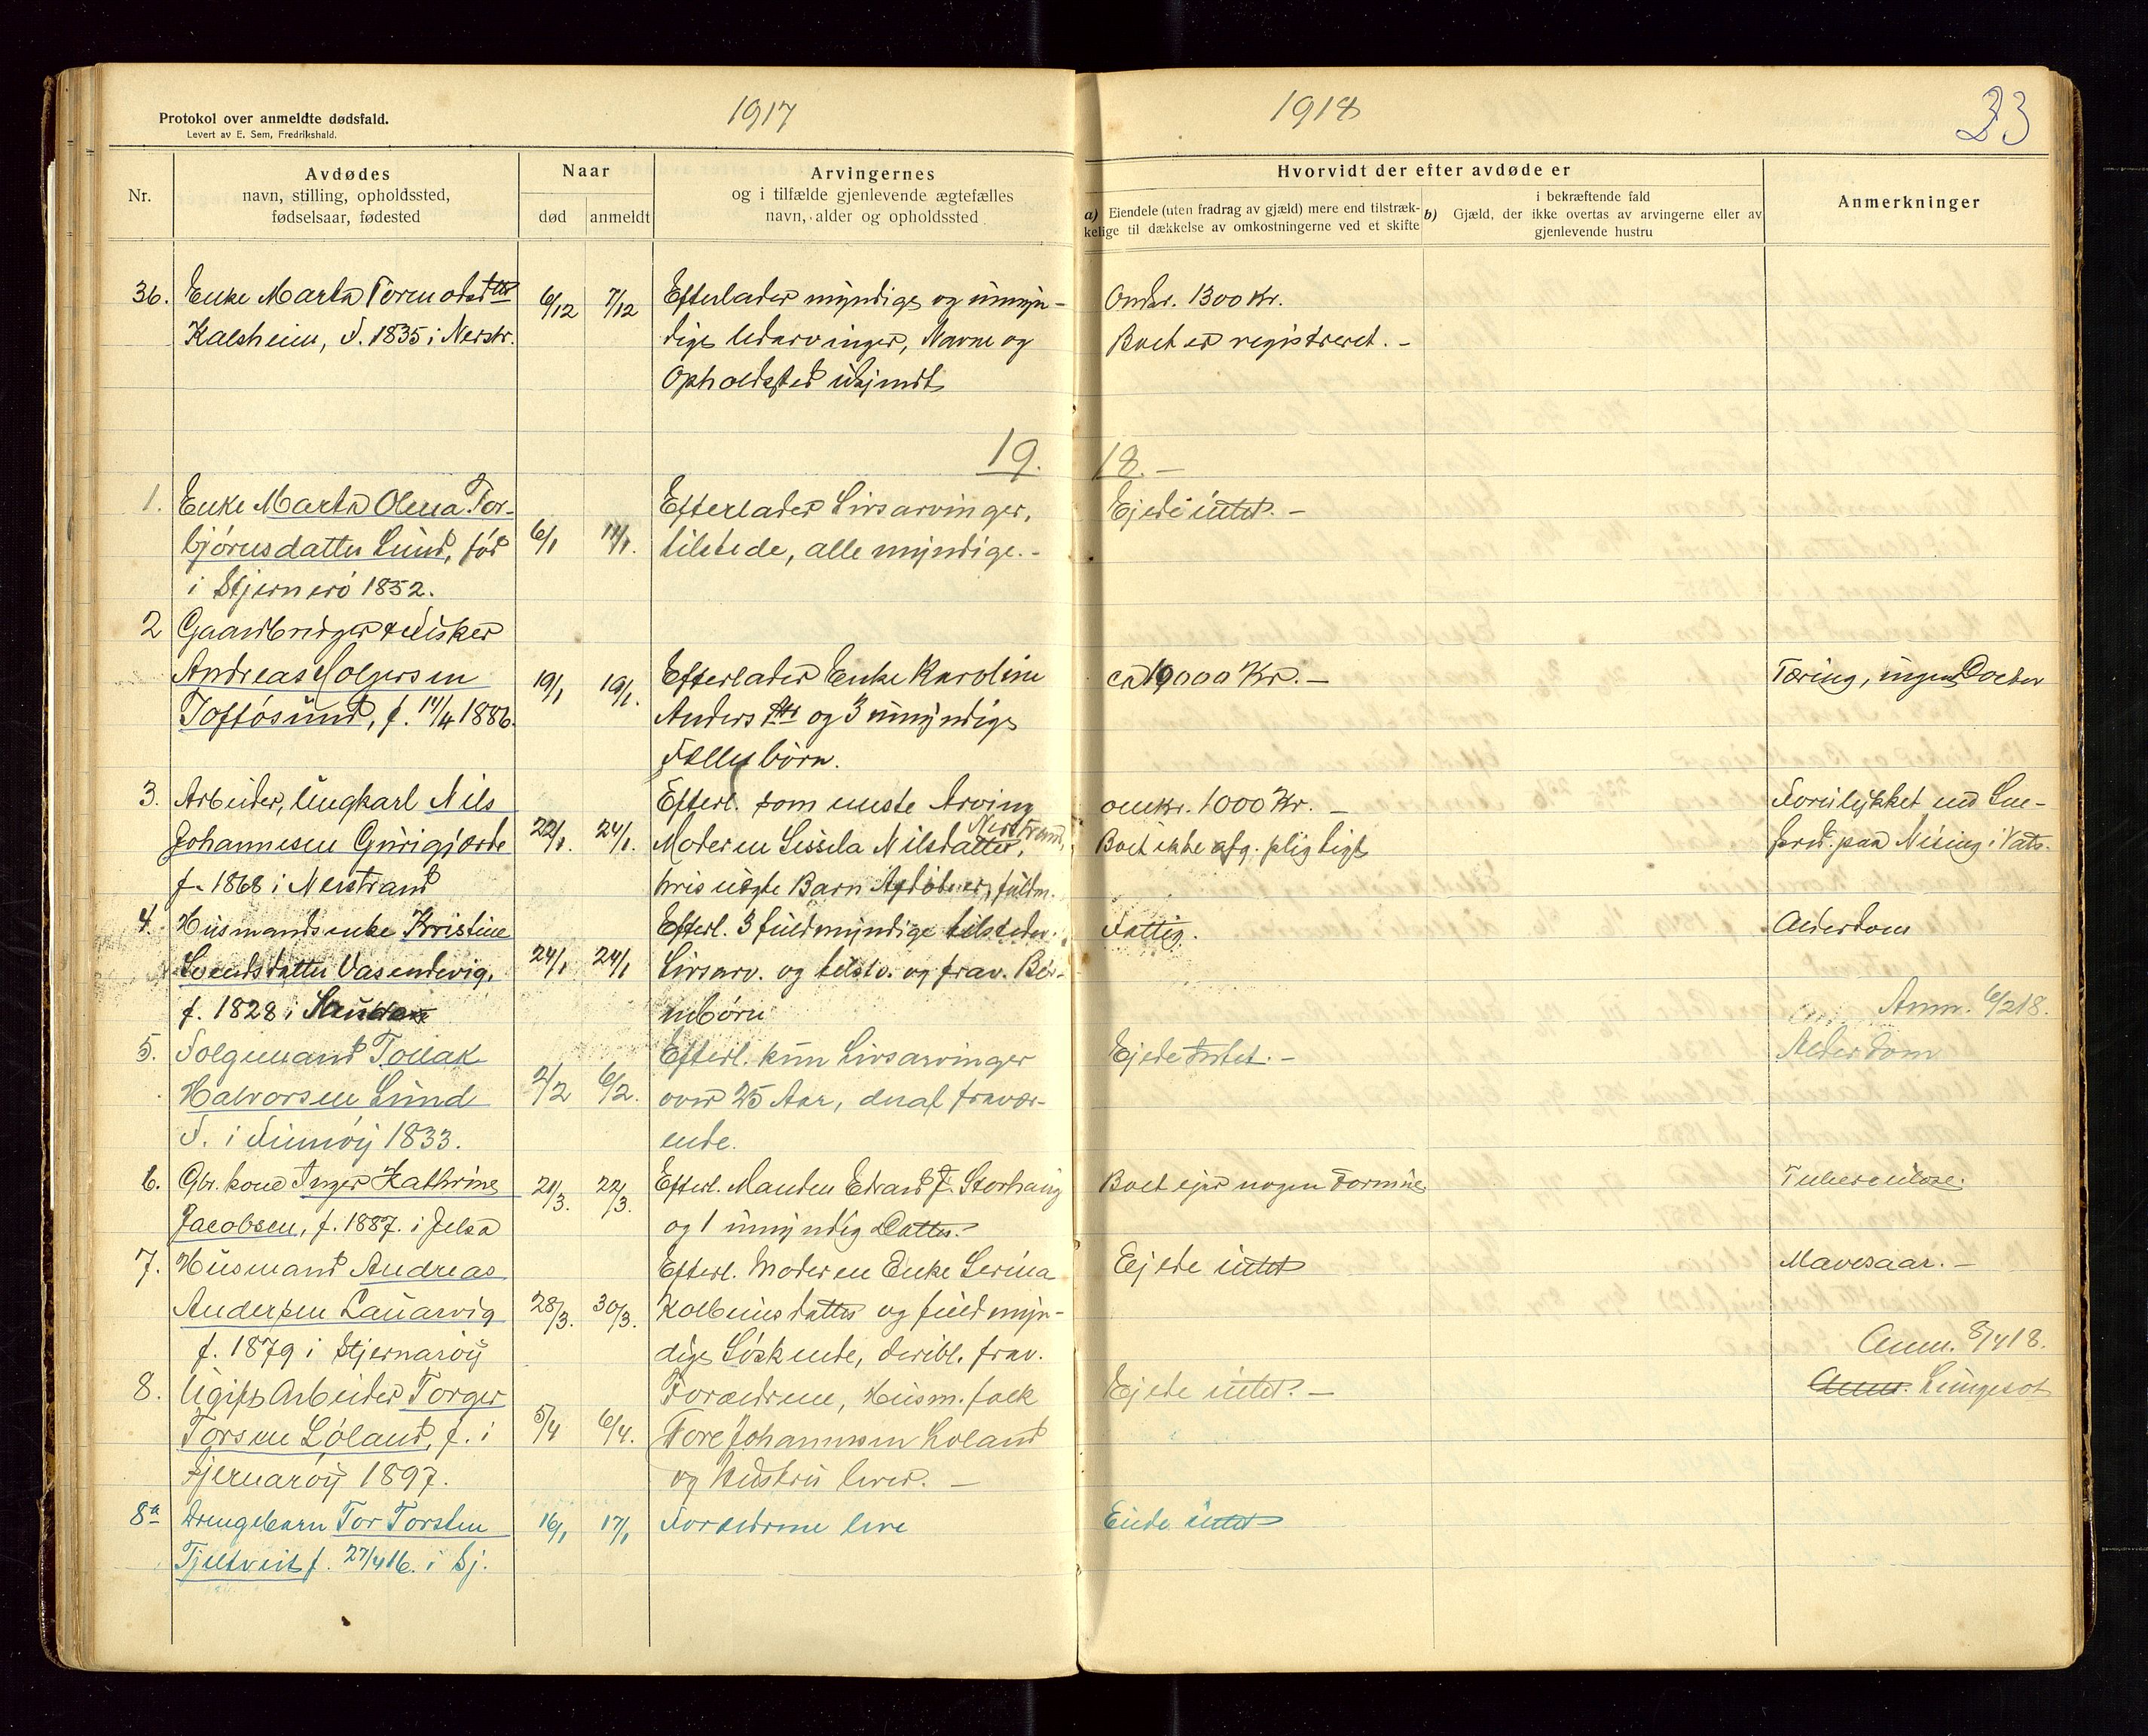 Protokol over anmeldte dødsfald.
Levert av E. Sem, Fredrikshald.
1917
1918
33
Nr.
Avdødes
navn, stilling, opholdssted,
fødselsaar, fødested
Naar
død
anmeldt
Arvingernes
og i tilfælde gjenlevende ægtefælles
navn, alder og opholdssted
Hvorvidt der efter avdøde er
a) Eiendele (uten fradrag av gjæld) mere end tilstræk-
kelige til dækkelse av omkostningerne ved et skifte
i bekræftende fald
b) Gjæld, der ikke overtas av arvingerne eller av
gjenlevende hustru
Anmerkninger
36. Enke Marta Tormodsdtr
Kalsheim, F. 1835 i Nerstr.
6/12 7/12
Efterlader myndige og umyn-
dige Udarvinger, Navne og
Opholdssted ukjendt
Omkr. 1300 Kr.
Boet er registreret. -
19. 18. -
1. Enke Marta Olena Tor-
björnsdatter Lund, född
i Stjernerö 1852.
6/1 11/1.
Efterlader Livsarvinger,
tilstede, alle myndige. -
Ejede intet. -
2 Gaardbruger & Fisker
Andreas Holgersen
Toftøsund, f. 11/4 1886.
19/1 19/1.
Efterlader Enke Karoline
Andersdtr og 3 umyndige
Fællesbörn.
ca 10000 Kr. -
Tæring, ingen Doctor
3. Arbeider, Ungkarl Nils
Johannesen Gurigjærde
f. 1868 i Nerstrand
22/1. 24/1.
Efterl. som eneste Arving
Moderen Sissela Nilsdatter, Nerstrand,
hvis Barn Afdöde er, fuldm.
omkr. 1000 Kr. -
Boet ikke afg. pligtigt
Forulykket ved Sne-
paa i Vats.
4. Husmandsenke Kristine
Svendsdatter Vasendvig,
f. 1828 i
24/1 24/1
Efterl. 3 fuldmyndige tilstedev.
Livsarv. og tilstv. og frav. Bör-
nebörn
Fattig.
Alderdom
Anm. 6/2 18.
5. Folgemand Tollak
Halvorsen Lund
F. i Finnöy 1833.
2/2 6/2.
Efterl. kun Livsarvinger
over 25 Aar, deraf fravær-
ende.
Ejede Intet. -
Alderdom
6. Gbr. kone Inger Kathrine
Jacobsen, f. 1887. i Jelsa
21/3. 22/3.
Efterl. Manden Edvard F. Storhaug
og 1 umyndig Datter.
Boet ejer nogen Formue
Tuberculose.
7. Husmand Andreas
Andersen Lauarvig
f. 1879 i Stjernaröy
28/3. 30/3.
Efterl. Moderen Enke Serina
Kolbeinsdatter og fuldmyn-
dige Söskende, deribl. frav.
Ejede intet
Mavesaar. -
Anm. 8/4 18.
8. Ugift Arbeider Torger
Torsen Löland, f. i
Sjernaröy 1897.
5/4 6/4.
Forældrene, Husm. folk
Tore Johannesen Loland
og Hustru lever. -
Ejede intet. -
Anm. Lungesot
8a Drengebarn Tor Torsten
Tjeltveit f. 27/4 16. i Sj.
16/1 17/1
Forældrene leve
Eiede intet